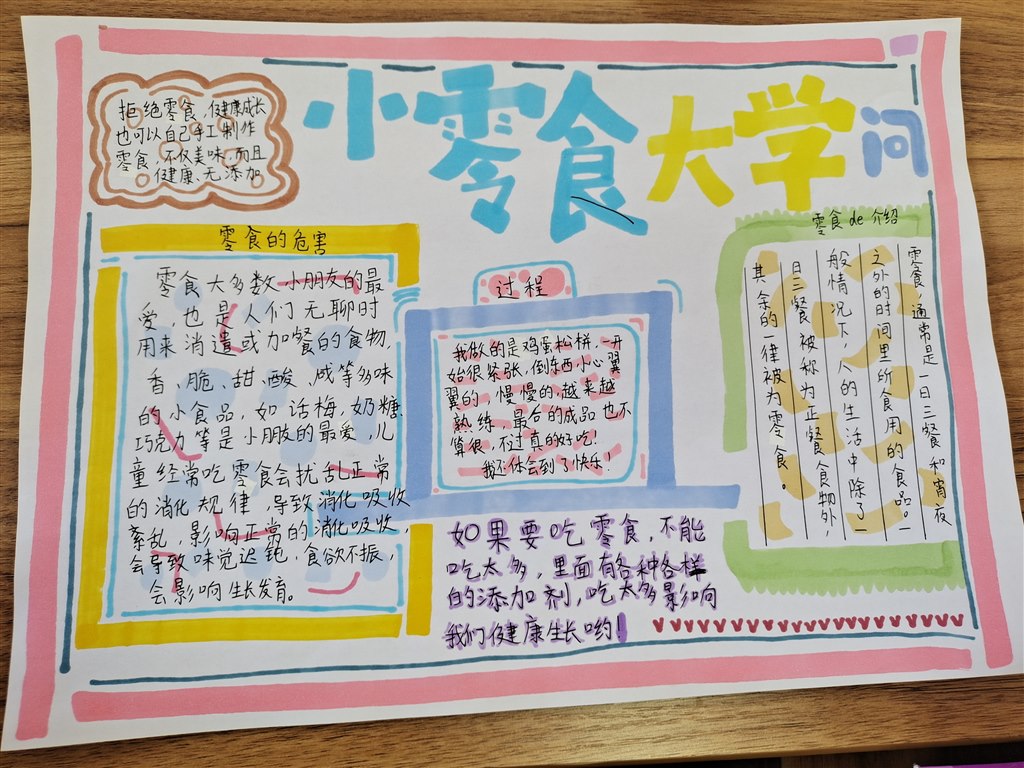 小零食大学问
拒绝零食,健康成长
也可以自己手工制作
零食,不仅美味,而且
健康、无添加
零食的危害
零食大多数小朋友的最
爱,也是人们无聊时
用来消遣或加餐的食物,
香、脆、甜、酸、咸等多味
的小食品,如话梅,奶糖
巧克力等是小朋友的最爱,儿
童经常吃零食会扰乱正常
的消化规律,导致消化吸收
紊乱,影响正常的消化吸收,
会导致味觉迟钝,食欲不振,
会影响生长发育。
过程
我做的是鸡蛋松饼,一开
始很紧张,倒东西小心翼
翼的,慢慢的,越来越
熟练,最后的成品也不
算很,不过真的好吃!
我还体会到了快乐!
如果要吃零食,不能
吃太多,里面有各种各样
的添加剂,吃太多影响
我们健康生长哟!
零食de介绍
零食,通常是一日三餐和宵夜
之外的时间里所食用的食品。一
般情况下,人的生活中除了一
日三餐被称为正餐食物外,
其余的一律被为零食。